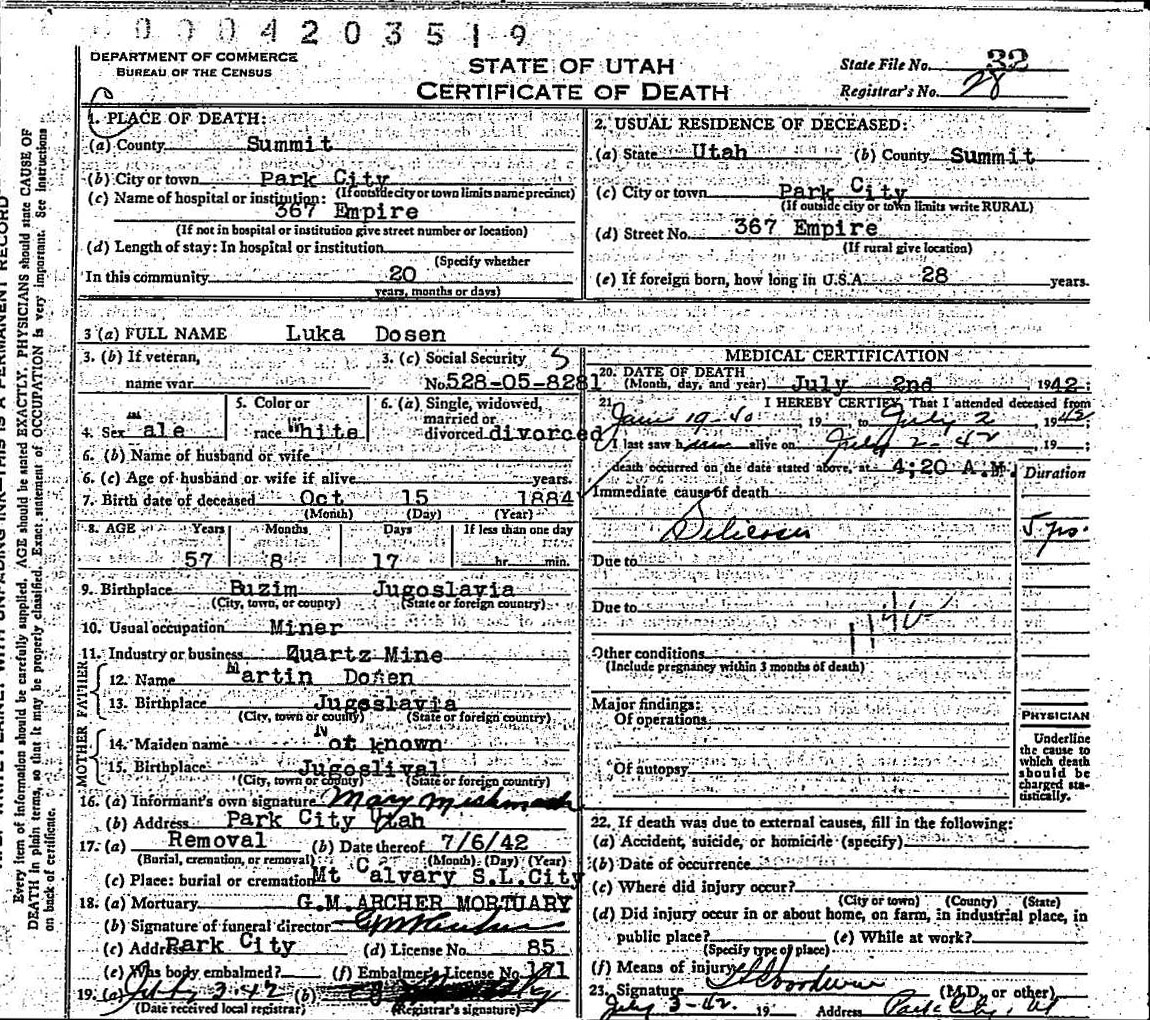 0004203519
DEPARTMENT OF COMMERCE
BUREAU OF THE CENSUS
STATE OF UTAH
CERTIFICATE OF DEATH
State File No. 32
Registrar's No. 28
Every item of information should be carefully supplied. AGE should be stated EXACTLY. PHYSICIANS should state CAUSE OF
DEATH in plain terms, so that it may be properly classified. Exact statement of OCCUPATION is very important. See instructions
on back of certificate.
1. PLACE OF DEATH:
(a) County Summit
(b) City or town Park City
(If outside city or town limits name precinct)
(c) Name of hospital or institution:
367 Empire
(If not in hospital or institution give street number or location)
(d) Length of stay: In hospital or institution
(Specify whether
In this community 20
years, months or days)
2. USUAL RESIDENCE OF DECEASED:
(a) State Utah (b) County Summit
(c) City or town Park City
(If outside city or town limits write RURAL)
(d) Street No. 367 Empire
(If rural give location)
(e) If foreign born, how long in U.S.A. 28 years.
3 (a) FULL NAME Luka Dosen
3. (b) If veteran,
name war
3. (c) Social Security
No. 528-05-8281
4. Sex male
5. Color or
race White
6. (a) Single, widowed,
married or
divorced divorced
6. (b) Name of husband or wife
6. (c) Age of husband or wife if alive years.
7. Birth date of deceased Oct 15 1884
(Month) (Day) (Year)
8. AGE Years Months Days If less than one day
57 8 17 hr. min.
9. Birthplace Buzim Jugoslavia
(City, town, or county) (State or foreign country)
10. Usual occupation Miner
11. Industry or business Quartz Mine
FATHER
12. Name Martin Dosen
13. Birthplace Jugoslavia
(City, town or county) (State or foreign country)
MOTHER
14. Maiden name Not known
15. Birthplace Jugoslival
(City, town or county) (State or foreign country)
16. (a) Informant's own signature Mary
(b) Address Park City Utah
17. (a) Removal (b) Date thereof 7/6/42
(Burial, cremation, or removal) (Month) (Day) (Year)
(c) Place: burial or cremation Mt Calvary S.L.City
18. (a) Mortuary G.M.ARCHER MORTUARY
(b) Signature of funeral director
(c) Address Park City (d) License No. 85
(e) Was body embalmed? (f) Embalmer's License No. 171
19. (a) July 3-42 (b)
(Date received local registrar) (Registrar's signature)
MEDICAL CERTIFICATION
20. DATE OF DEATH
(Month, day, and year) July 2nd, 1942;
21. I HEREBY CERTIFY, That I attended deceased from
Jan 19-40 19 to July 2 1942
I last saw him alive on July 2-42 19 ;
death occurred on the date stated above, at 4;20 A.M.
Duration
Immediate cause of death
Silicosis 5 yrs.
Due to
Due to
Other conditions
(Include pregnancy within 3 months of death)
Major findings:
Of operations
Of autopsy
PHYSICIAN
Underline
the cause to
which death
should be
charged sta-
tistically.
22. If death was due to external causes, fill in the following:
(a) Accident, suicide, or homicide (specify)
(b) Date of occurrence
(c) Where did injury occur?
(City or town) (County) (State)
(d) Did injury occur in or about home, on farm, in industrial place, in
public place? (e) While at work?
(Specify type of place)
(f) Means of injury
23. Signature (M.D. or other)
July 3-42. 19 Address Park City, Ut